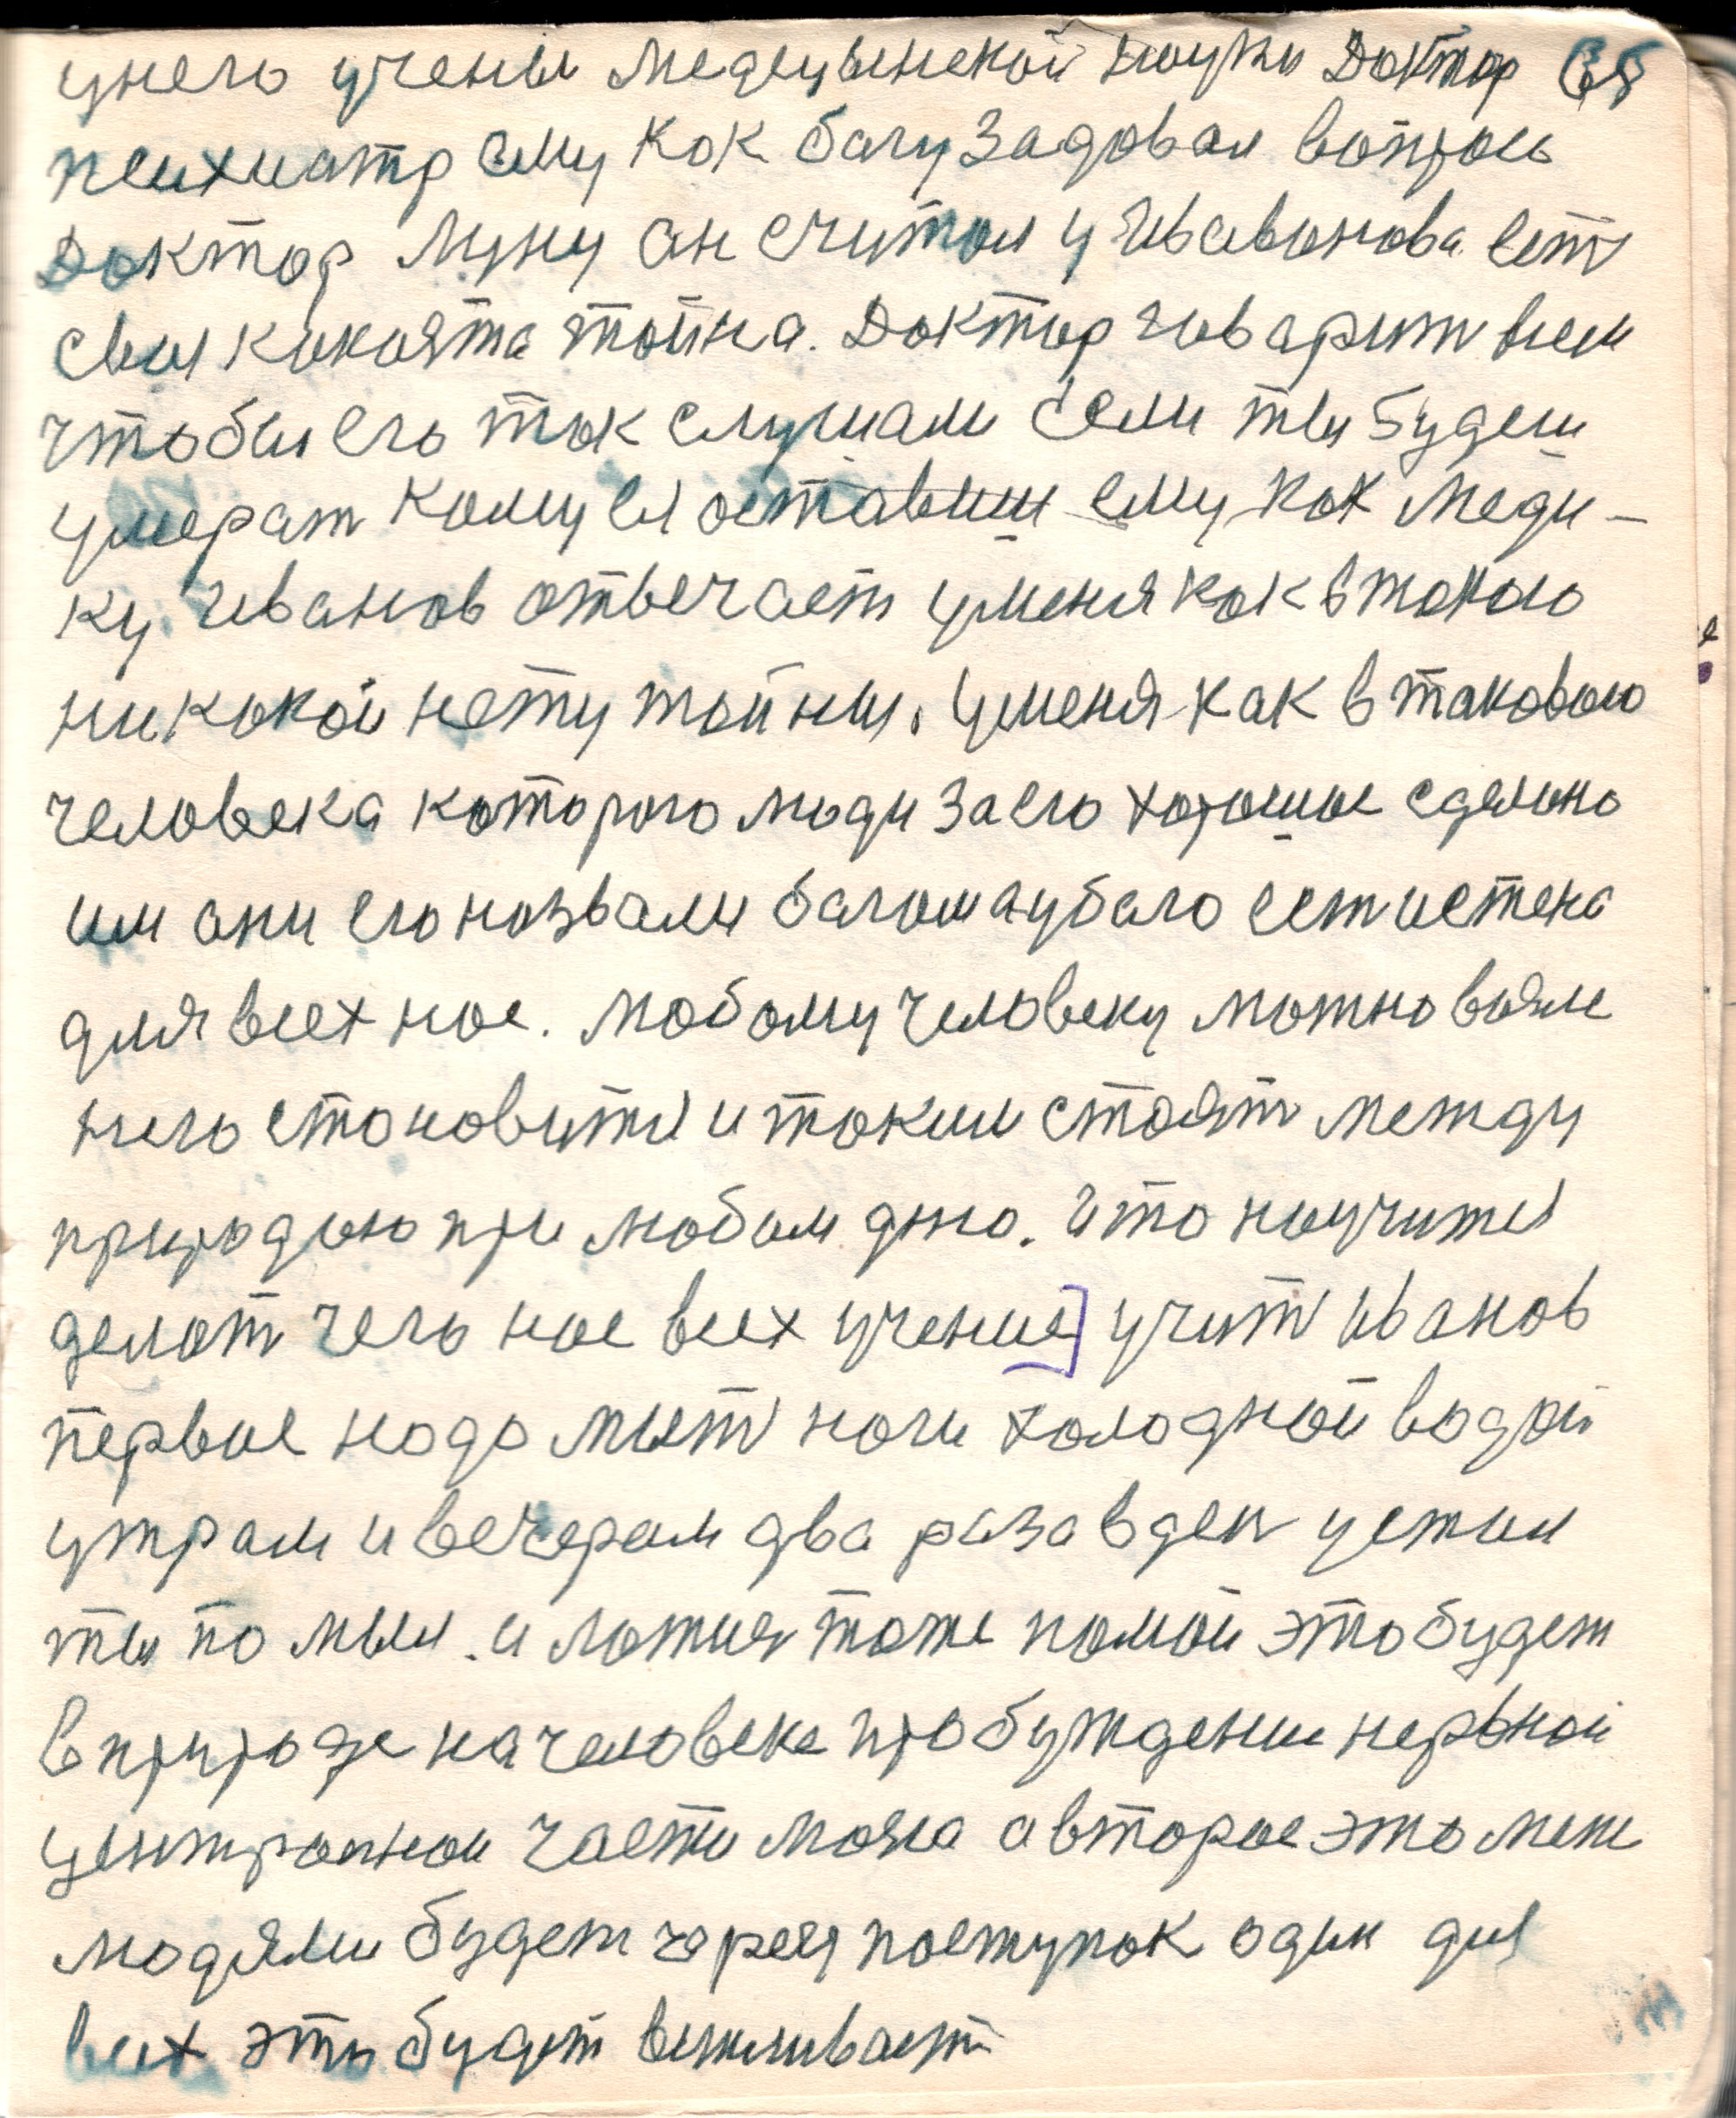 унего учены медецынской науки Доктор
психиатр ему как богу задовал вопрось
Доктор Луну он считал у Ивавонова ест
своя какоята тойна. Доктор говарит всем
чтобы его так слушали если ты будеш
умерат кому ее оставиш ему как меди-
ку. Иванов отвечает уменя как втокого
никокой нету тойны. уменя как втаковою
человека которого люди заего хорошое сделоно
им ани его назвали богом аубого ест истена
для всех нас. Любому человеку можно возле
него становится и таким стоят между
природою при любом дню. Что научится
делат чего нас всех учение учит Иванов
первое надо мыт ноги холодной водой
утрам и вечерам два раза вден устал
ты помыл. и ложися тоже помой это будет
вприроде на человеке пробуждение нервной
центральной части мозга а второе это меж
людями будет через поступок один для
всех это будет вежливаст